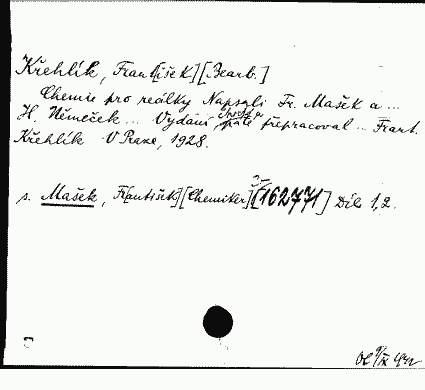 Křehlík, Frant[išek] [Bearb.]
Chemie pro reálky Napsali Fr. Mašek a ...
H. Němeček ... Vydání páté přepracoval ... Frant.
Křehlík V Praze, 1928.
s. Mašek, Fr[antišek] [Chemiker] [162771] Díl 1,2.